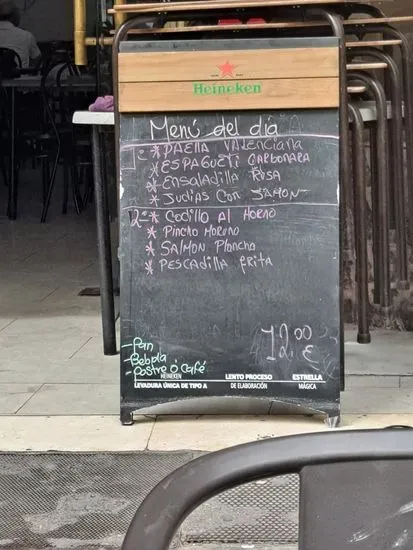 Heineken
Menú del día
1º * PAELLA VALENCIANA
* ESPAGUETI CARBONARA
* ENSALADILLA RUSA
* JUDIAS CON JAMON
2º * Codillo AL HORNO
* PINCHO MORUNO
* SALMON Plancha
* PESCADILLA FRITA
12,00 €
- Pan
- Bebida
- Postre ó Café
HEINEKEN
LEVADURA ÚNICA DE TIPO A
LENTO PROCESO
DE ELABORACIÓN
ESTRELLA
MÁGICA